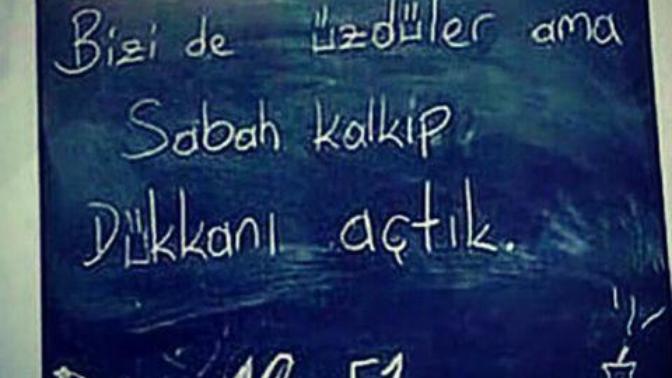 Bizi de üzdüler ama
Sabah kalkip
Dükkanı açtık.